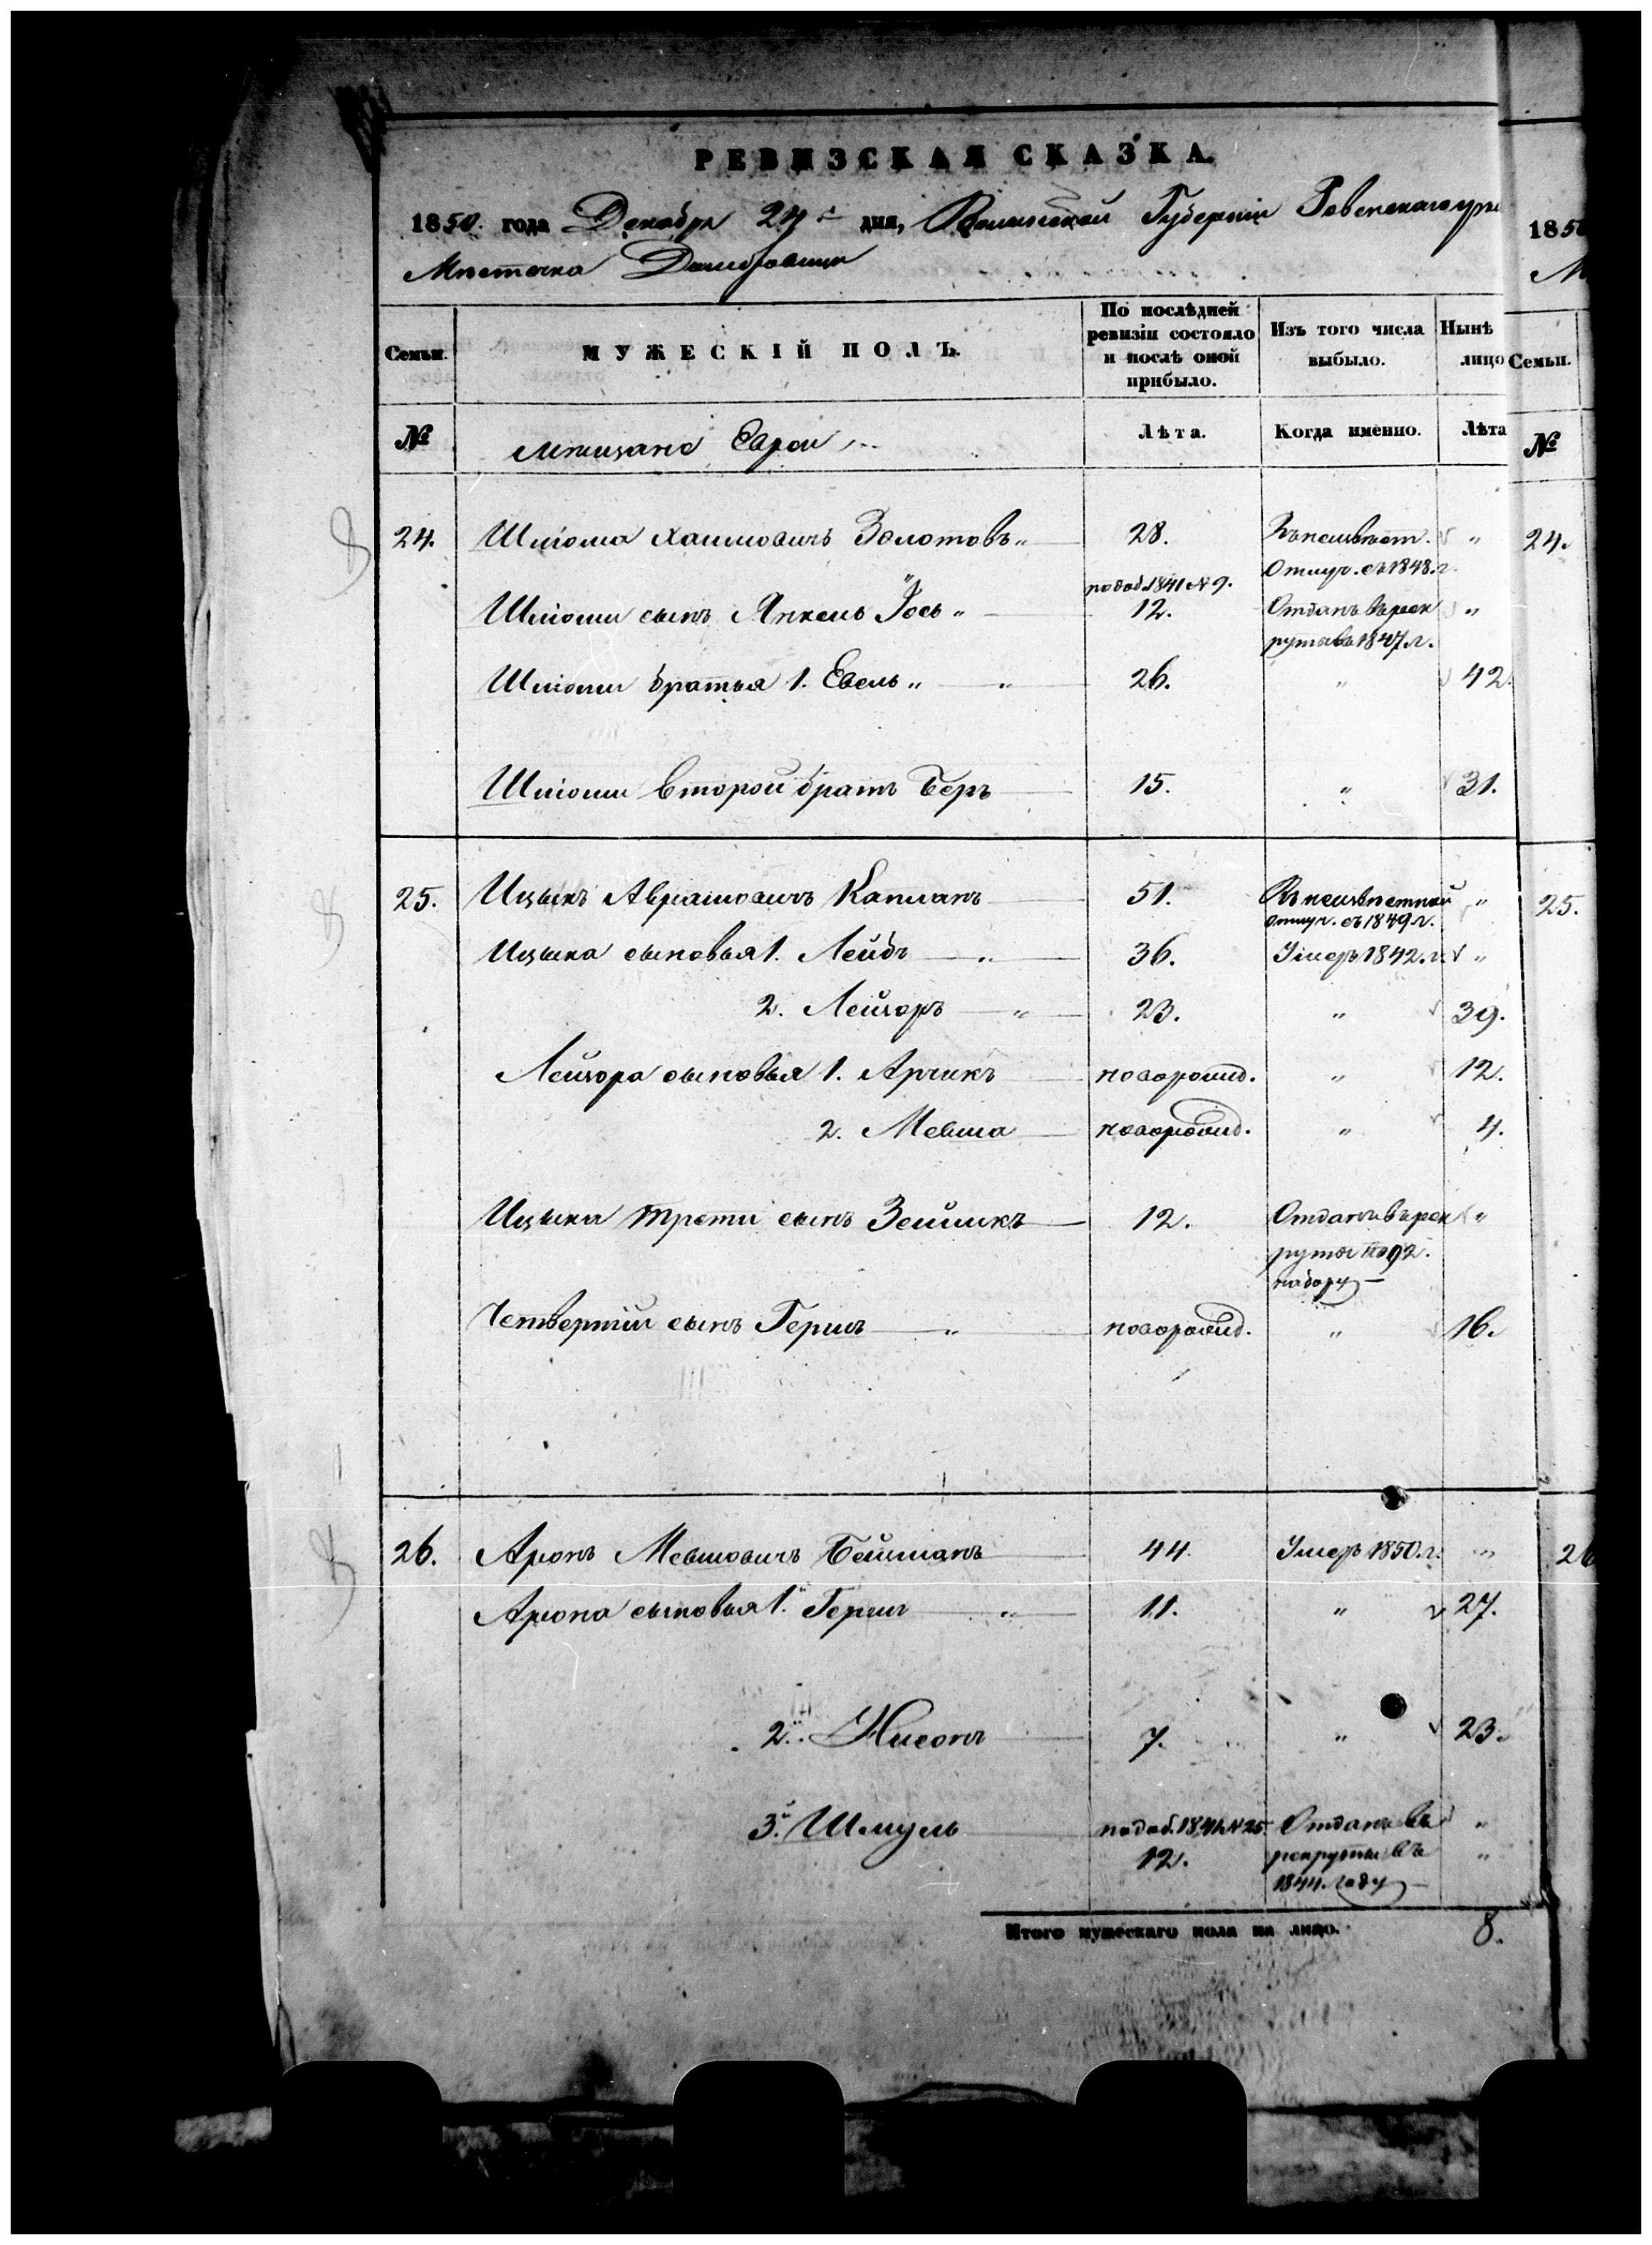 РЕВИЗСКАЯ СКАЗКА.
1850. года Декабря 24 дня, Волынской Губерніи Ровенскаго
Мѣстечка Домбровицы
Семьи. МУЖЕСКІЙ ПОЛЪ. По послѣдней ревизіи состояло и послѣ оной прибыло. Изъ того числа выбыло. Нынѣ лицо
№ мѣщане Евреи Лѣта. Когда именно. Лѣта
24. Шліома Хаимовичъ Золотовъ „ 28. Въ неизвѣст. „
Отлуч. съ 1848. г.
по доб. 1841 № 9.
Шліомы сынъ Янкель Іось „ 12. Отданъ въ рек „
руты въ 1847. г.
Шліомы братья 1. Евель „ „ 26. „ 42.
Шліомы второй братъ Беръ 15. „ 31.
25. Ицыкъ Аврамовичъ Капланъ 51. Въ неизвѣстной „
отлуч. съ 1849 г.
Ицыка сыновья 1. Лейбъ „ 36. Умеръ 1842. г. „
2. Лейзоръ „ 23. „ 39.
Лейзора сыновья 1. Арчикъ новорожд. „ 12.
2. Мевша новорожд. „ 4.
Ицыка трети сынъ Зейликъ 12. Отданъ въ рек „
руты по 92.
набору
Четвертій сынъ Гершъ „ новорожд. „ 16.
26. Аронъ Мевшовичъ Бейманъ 44 Умеръ 1850. г. „
Арона сыновья 1. Гершъ „ 11. „ 27.
2. Нисонъ 7. „ 23.
3. Шмуль по доб. 1841 № 25. Отданъ въ „
12. рекруты въ „
1844. году
Итого мужескаго пола на лицо. 8.
1850
М
Семьи.
№
24.
25.
26